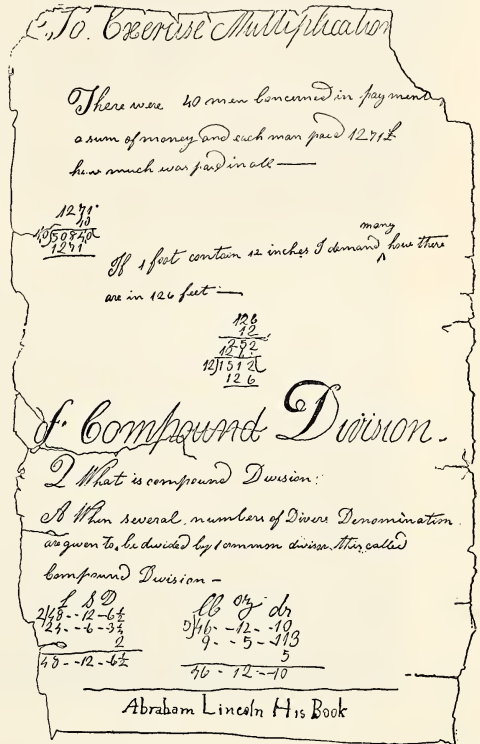 To Exercise Multiplication
There were 40 men Concerned in payment
a sum of money and each man paid 1271£
how much was paid in all —
1271
40
40)50840
1271
many
If 1 foot contain 12 inches I demand ^ how there
are in 126 feet —
126
12
252
126
12)1512(
126
of Compound Division.
Q What is compound Division:
A When several numbers of Divers Denomination
are given to be divided by 1 common divisor this called
Compound Division —
£ S D
2)48--12-6½
24--6-3¼
2
48--12-6½
lb oz dr
5)46--12--10
9--5--113
5
46-12--10
Abraham Lincoln His Book